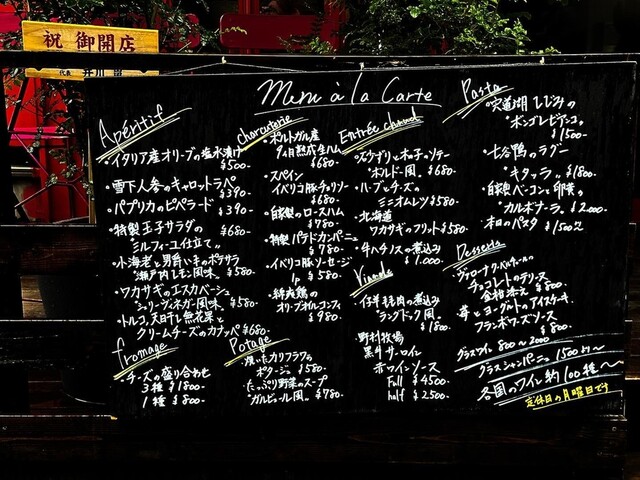 祝 御開店
代表
Menu à la Carte
Apéritif
・イタリア産オリーブの塩水漬け
¥500
・雪下人参のキャロットラペ
¥390-
・パプリカのピペラード
¥390-
・特製玉子サラダの
ミルフィーユ仕立て
¥680-
・小海老と男爵いものポテサラ
瀬戸内レモン風味 ¥580-
・ワカサギのエスカベーシュ
シェリーヴィネガー風味 ¥580-
・トルコ産天日干し無花果と
クリームチーズのカナッペ ¥680-
fromage
・チーズの盛り合わせ
3種 ¥1800-
1種 ¥800-
charcuterie
・ポルトガル産
9ヵ月熟成生ハム
¥680-
・スペイン
イベリコ豚チョリソー
¥680-
・自家製のロースハム
¥780-
・特製パテドカンパーニュ
¥780-
・イベリコ豚ソーセージ
1p ¥580-
鶏の
オリーブオイルコンフィ
¥980-
Potage
・焦がしカリフラワーの
ポタージュ ¥580-
・たっぷり野菜のスープ
"ガルビュール"風 ¥780-
Entrée chaud
木の子のソテー
"ボルドー"風 ¥680-
・ハーブとチーズの
ミニオムレツ ¥580-
・北海道
ワカサギのフリット ¥580-
・牛ハチノスの煮込み
¥1.000-
Viande
もも肉の煮込み
"ラングドック"風
¥1800-
野村牧場
黒牛サーロイン
赤ワインソース
Full ¥4500-
half ¥2500-
Pasta
・宍道湖しじみの
ボンゴレビアンコ
¥1500-
・七谷鴨のラグー
キタッラ ¥1800-
・自家製ベーコンと卵黄の
カルボナーラ ¥2.000-
・本日のパスタ ¥1500〜
Desserts
・ヴァローナ
チョコレートのテリーヌ
金柑添え ¥800-
・苺とヨーグルトのアイスケーキ
フランボワーズソース
¥800-
グラスワイン 800〜2000
グラスシャンパーニュ 1500より〜
各国のワイン約100種〜
定休日の月曜日です